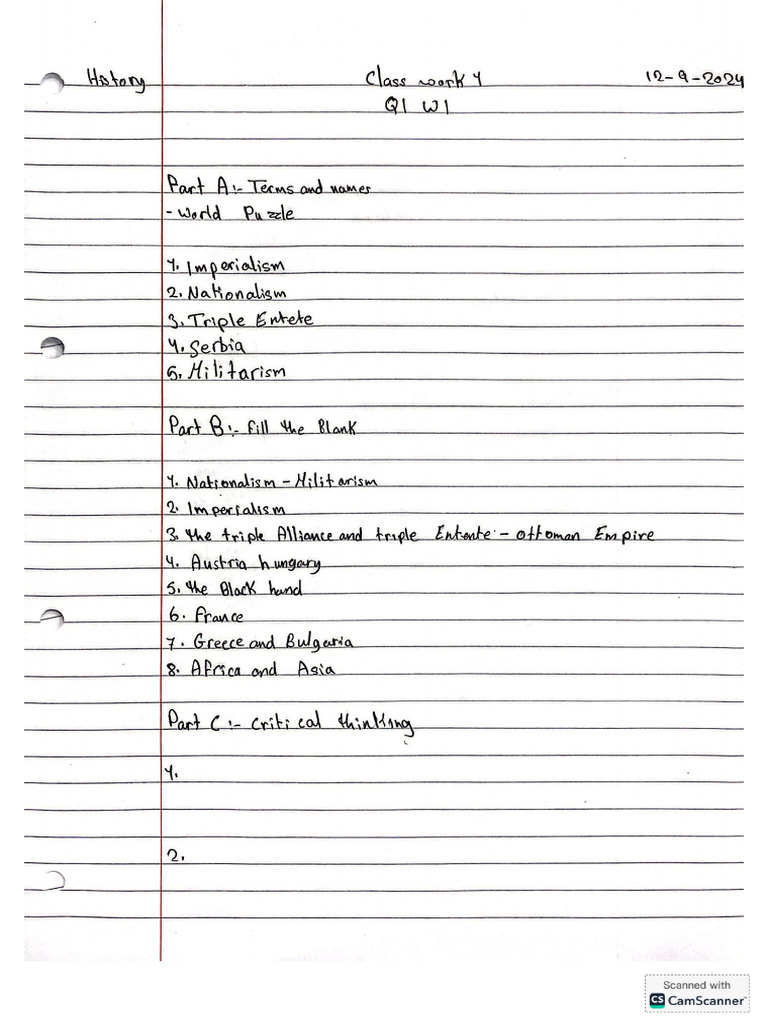 History Class work 1 12-9-2024
Q1 W1
Part A:- Terms and names
- World Puzzle
1. Imperialism
2. Nationalism
3. Triple Entete
4. Serbia
5. Militarism
Part B:- fill the Blank
1. Nationalism - Militarism
2. Imperialism
3. the triple Alliance and triple Entente - ottoman Empire
4. Austria hungary
5. the Black hand
6. France
7. Greece and Bulgaria
8. Africa and Asia
Part C:- critical thinking
1.
2.
Scanned with
CS CamScanner